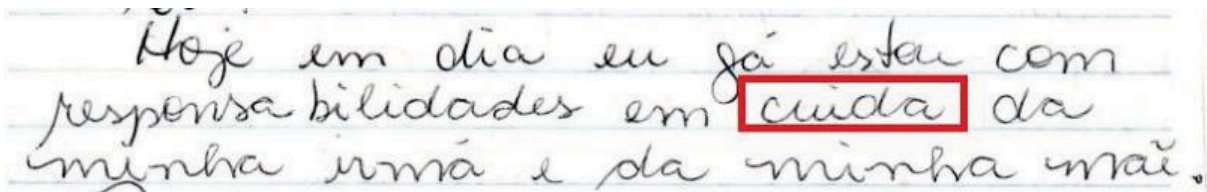 Hoje em dia eu já estou com
responsabilidades em cuida da
minha irmã e da minha mãe.